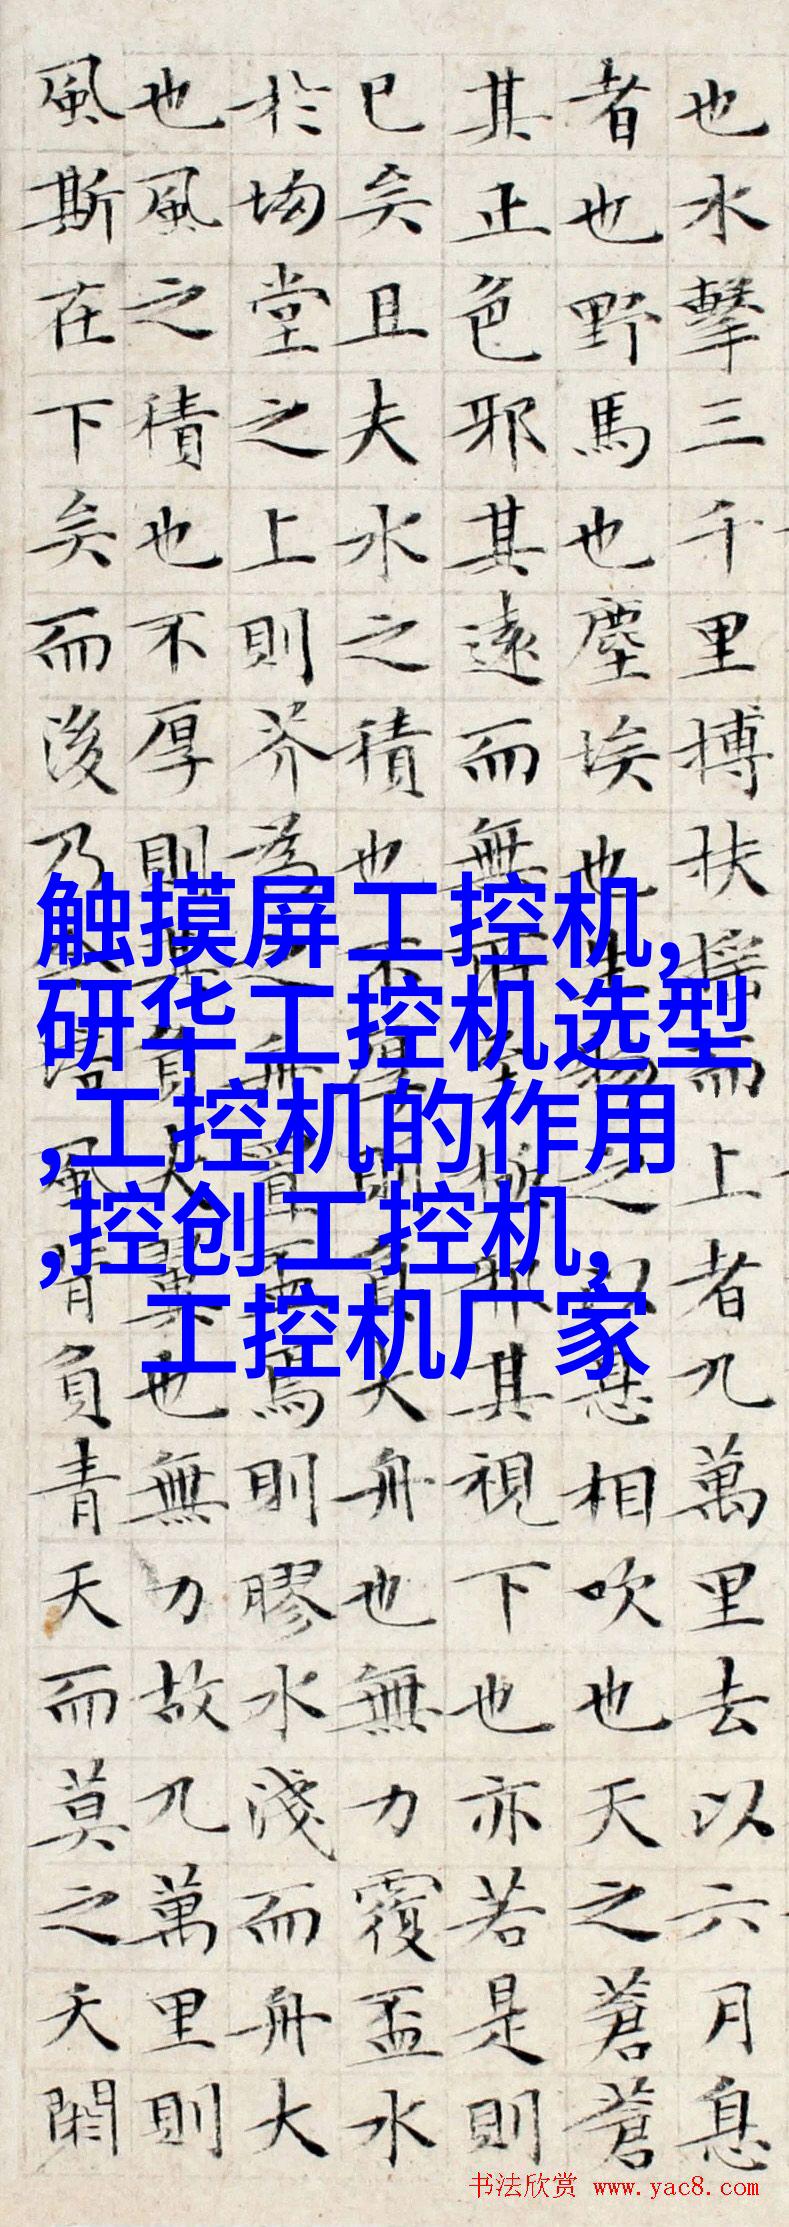 也水擊三千里搏扶搖而上者九萬里去以六月息
者也野馬也塵埃也生物之以息相吹也天之蒼蒼
其正色邪其遠而無所至極邪其視下也亦若是則
已矣且夫水之積也不厚則負大舟也無力覆盃水
於坳堂之上則芥為之舟置盃焉則膠水淺而舟大
也風之積也不厚則其負大翼也無力故九萬里則
風斯在下矣而後乃今培風背負青天而莫之夭閼
触摸屏工控机,
研华工控机选型
,工控机的作用
,控创工控机,
工控机厂家
书法欣赏 www.yac8.com